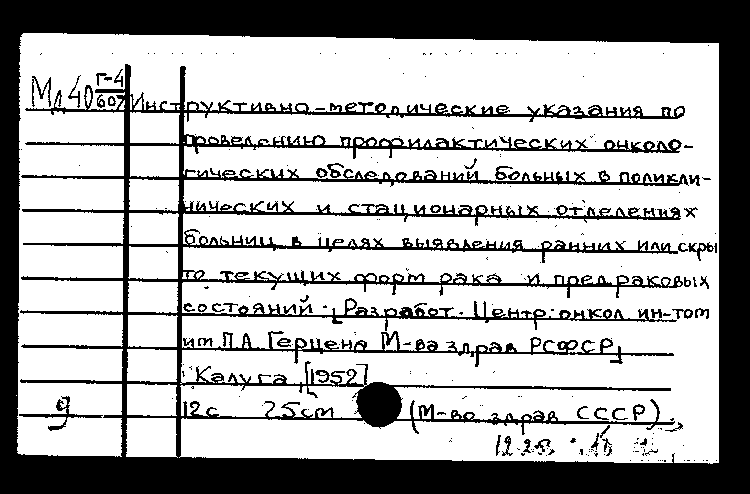 Мл40 Г-4/607 Инструктивно-методические указания по
проведению профилактических онколо-
гических обследований больных в поликли-
нических и стационарных отделениях
больниц в целях выявления ранних или скры
то текущих форм рака и предраковых
состояний. [Разработ. Центр. онкол ин-том
им П.А. Герцена М-ва здрав РСФСР]
Калуга, [1952]
9 12с 25cm (М-во здрав СССР).